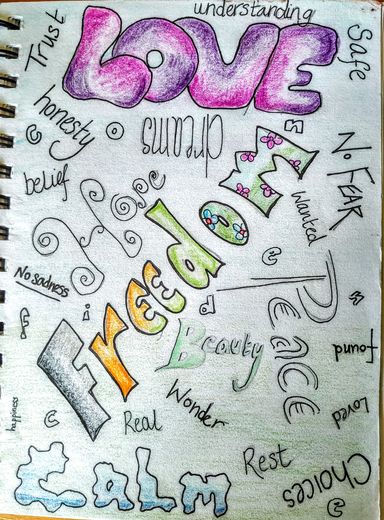 understanding
Trust
LOVE
Safe
honesty
dreams
No FEAR
belief
Hope
Wanted
FreedoM
No sadness
Peace
Beauty
found
happiness
Real
Wonder
Loved
Rest
Choices
CaLm